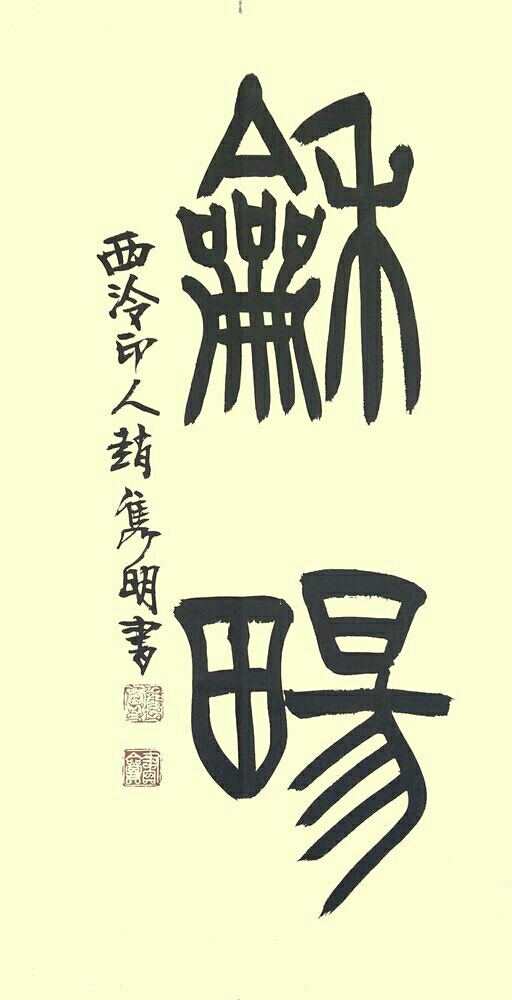 龢畼
西泠印人趙雋明書